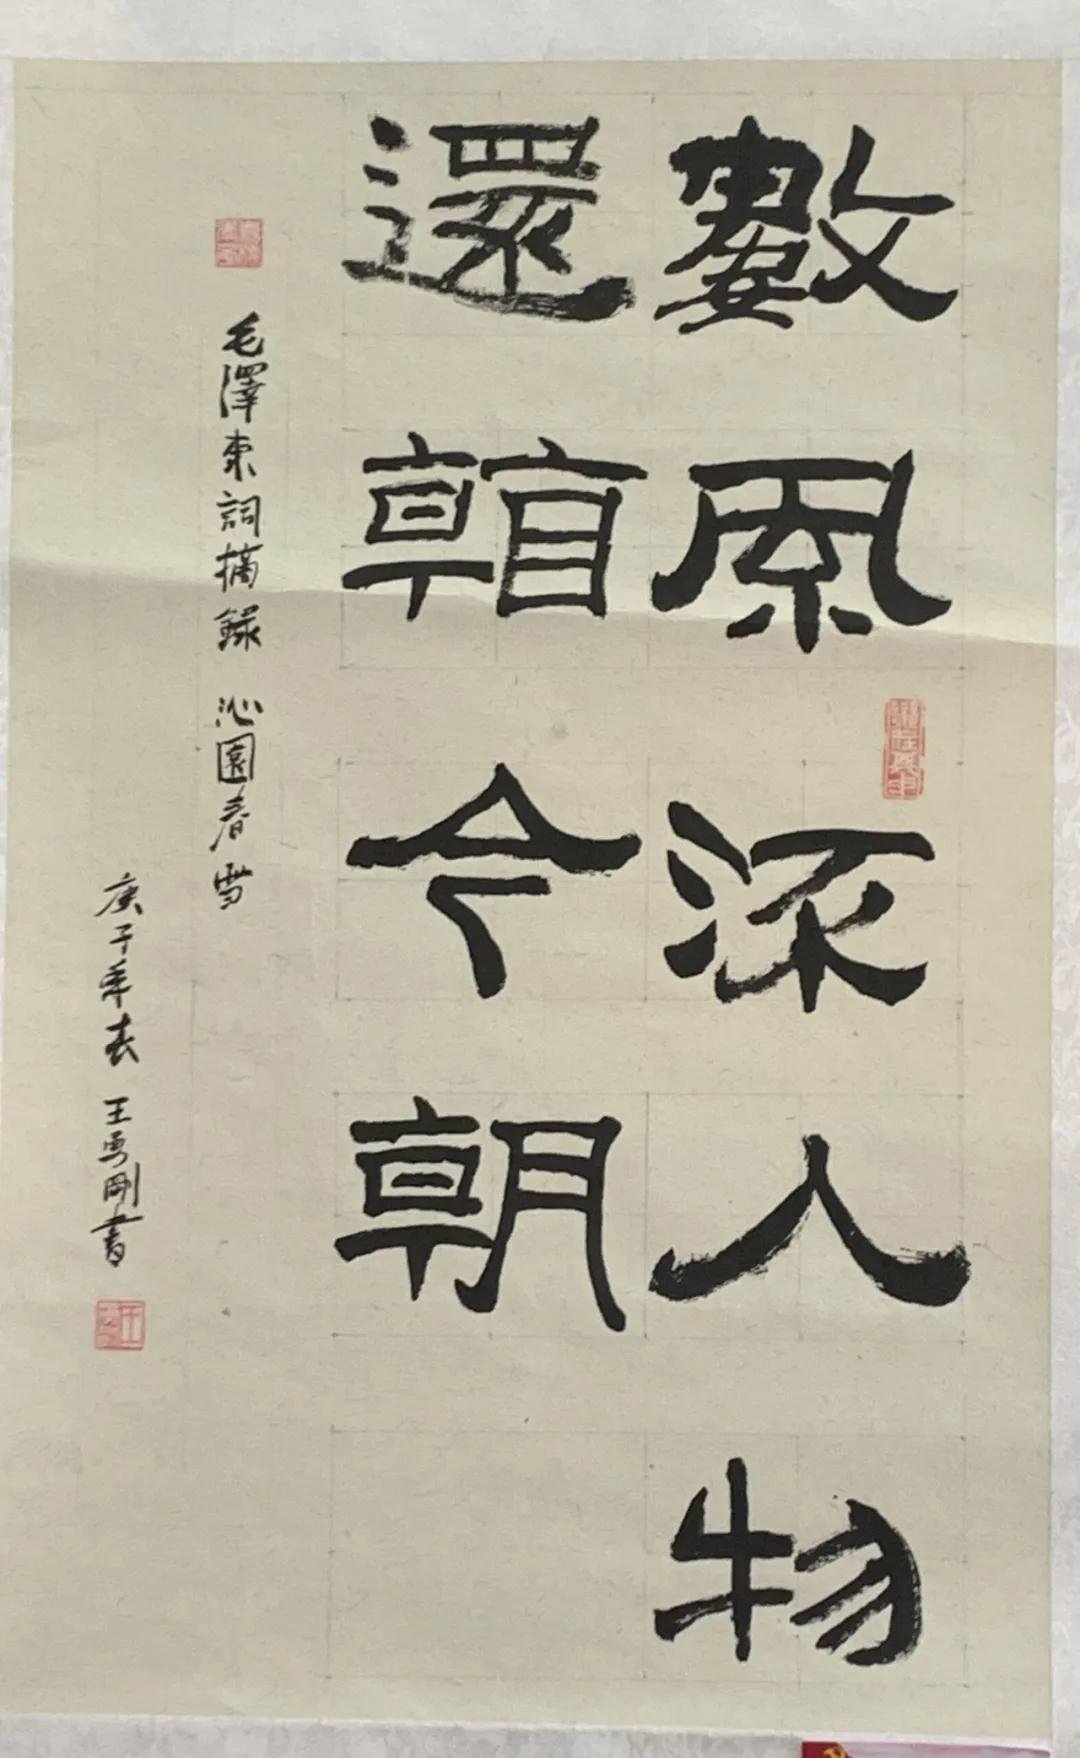 數風流人物
還看今朝
毛澤東詞摘錄 沁園春 雪
庚子年春 王勇剛書